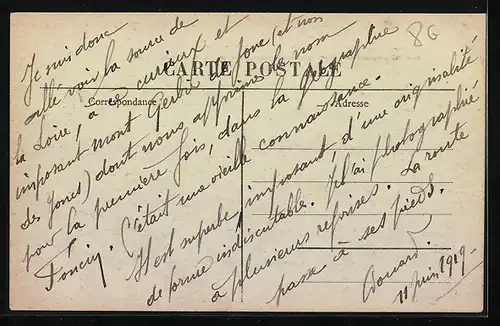 8G
CARTE POSTALE
Correspondance
Adresse
Je suis donc
allé voir la source de
la Loire, à ce curieux et
imposant mont Gerbier de Jonc (et non
des Joncs) dont nous apprîmes le nom
pour la première fois, dans la géographie
Foncin. C'était une vieille connaissance.
Il est superbe, imposant, d'une originalité
de forme indiscutable. Je l'ai photographié
à plusieurs reprises. La route
passe à ses pieds.
Edouard.
11 juin 1919